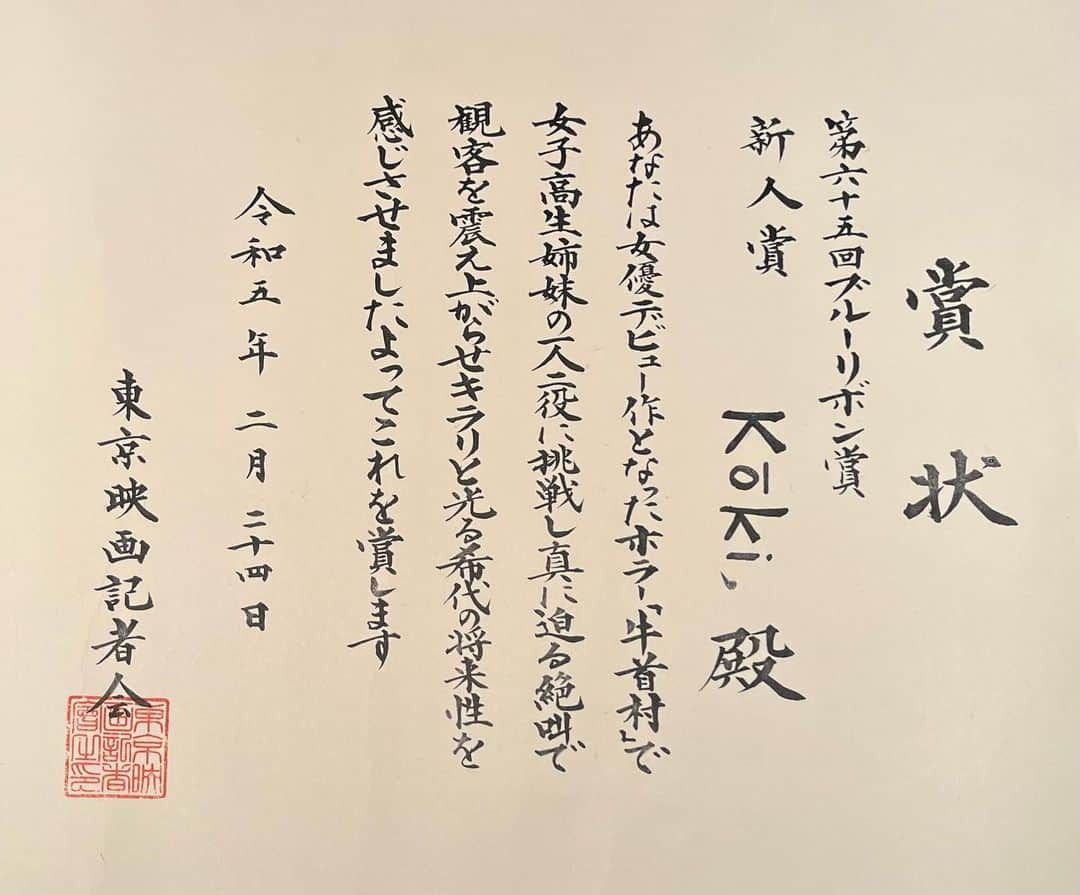 賞状
第六十五回ブルーリボン賞
新人賞 Kōki, 殿
あなたは女優デビュー作となったホラー「牛首村」で
女子高生姉妹の一人二役に挑戦し真に迫る絶叫で
観客を震え上がらせキラリと光る希代の将来性を
感じさせましたよってこれを賞します
令和五年 二月 二十四日
東京映画記者会
東京映画記者會之印